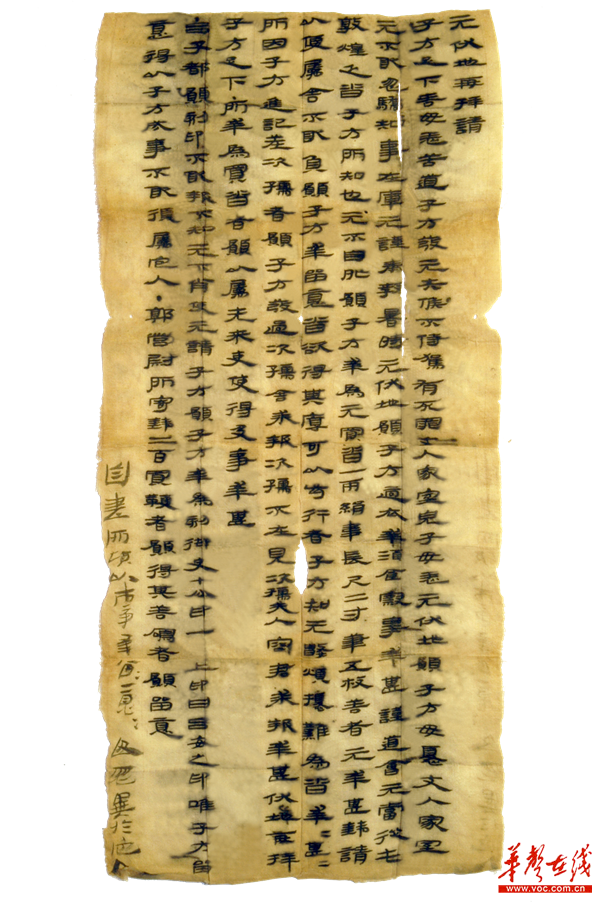 元伏地再拜請
子方足下善毋恙苦道子方發元失候不侍駕有死罪丈人家室兒子毋恙元伏地願子方毋憂丈人家室
元不敢忽驕知事在庫元謹奉教暑時元伏地願子方適衣幸酒食察事幸甚謹道會元當從屯
敦煌乏沓子方所知也元不自外願子方幸為元買沓一兩絹韋長尺二寸筆五枚善者元幸甚錢請
以便屬舍不敢負願子方幸留意沓欲得其厚可以步行者子方知元數煩擾難為沓幸〻甚〻
所因子方進記差次孺者願子方發過次孺舍求報次孺不在見次孺夫人容君求報幸甚伏地再拜
子方足下·所幸為買沓者願以屬先來吏使得及事幸甚
·呂子都願刻印不敢報不知元不肖使元請子方願子方幸為刻御史七分印一 上印曰呂安之印唯子方留
意得以子方成事不敢復屬它人·郭營尉所寄錢二百買鞭者願得其善鳴者願留意
自書所願以市事幸留意〻毋忽異於它人
華聲在线
www.voc.com.cn